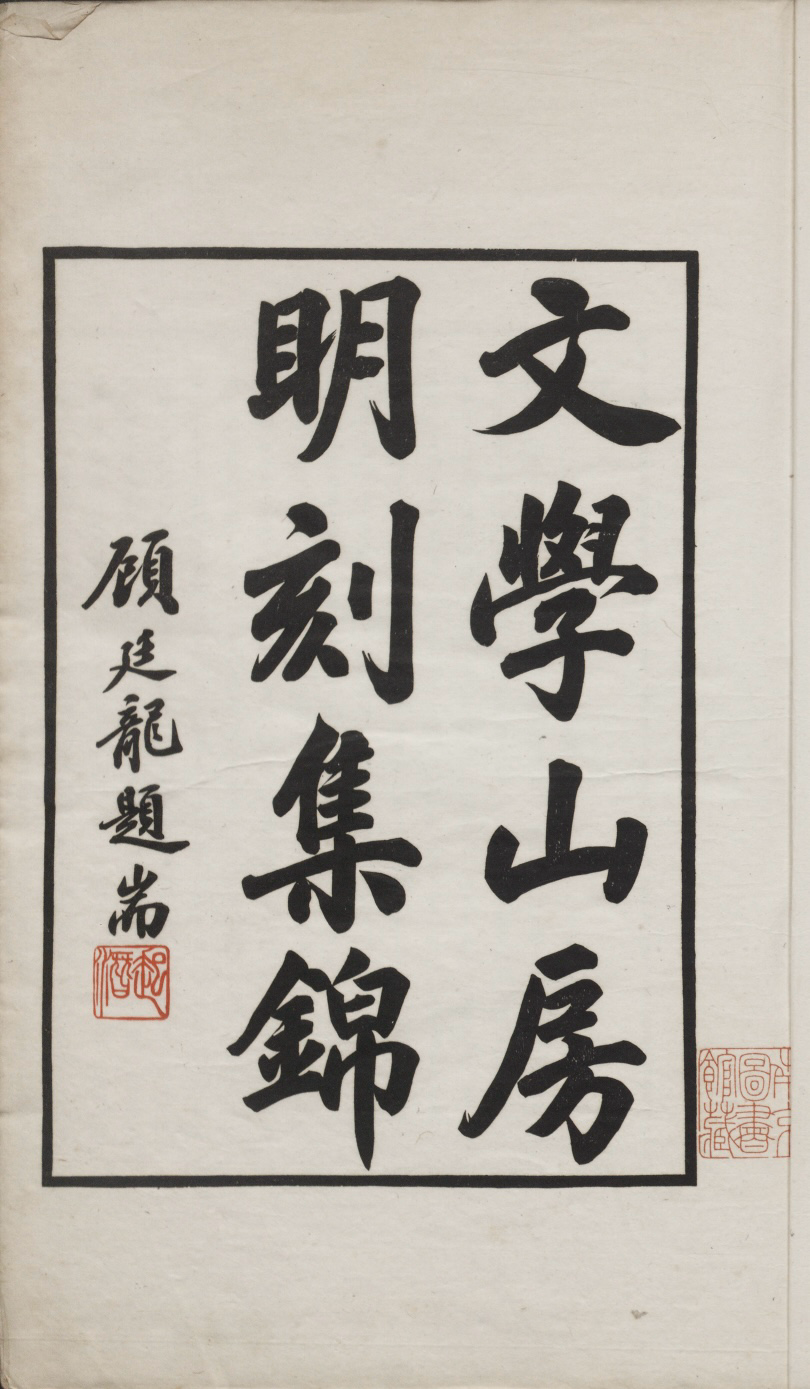 文學山房
明刻集錦
顧廷龍題耑
起潛
圖書
館藏